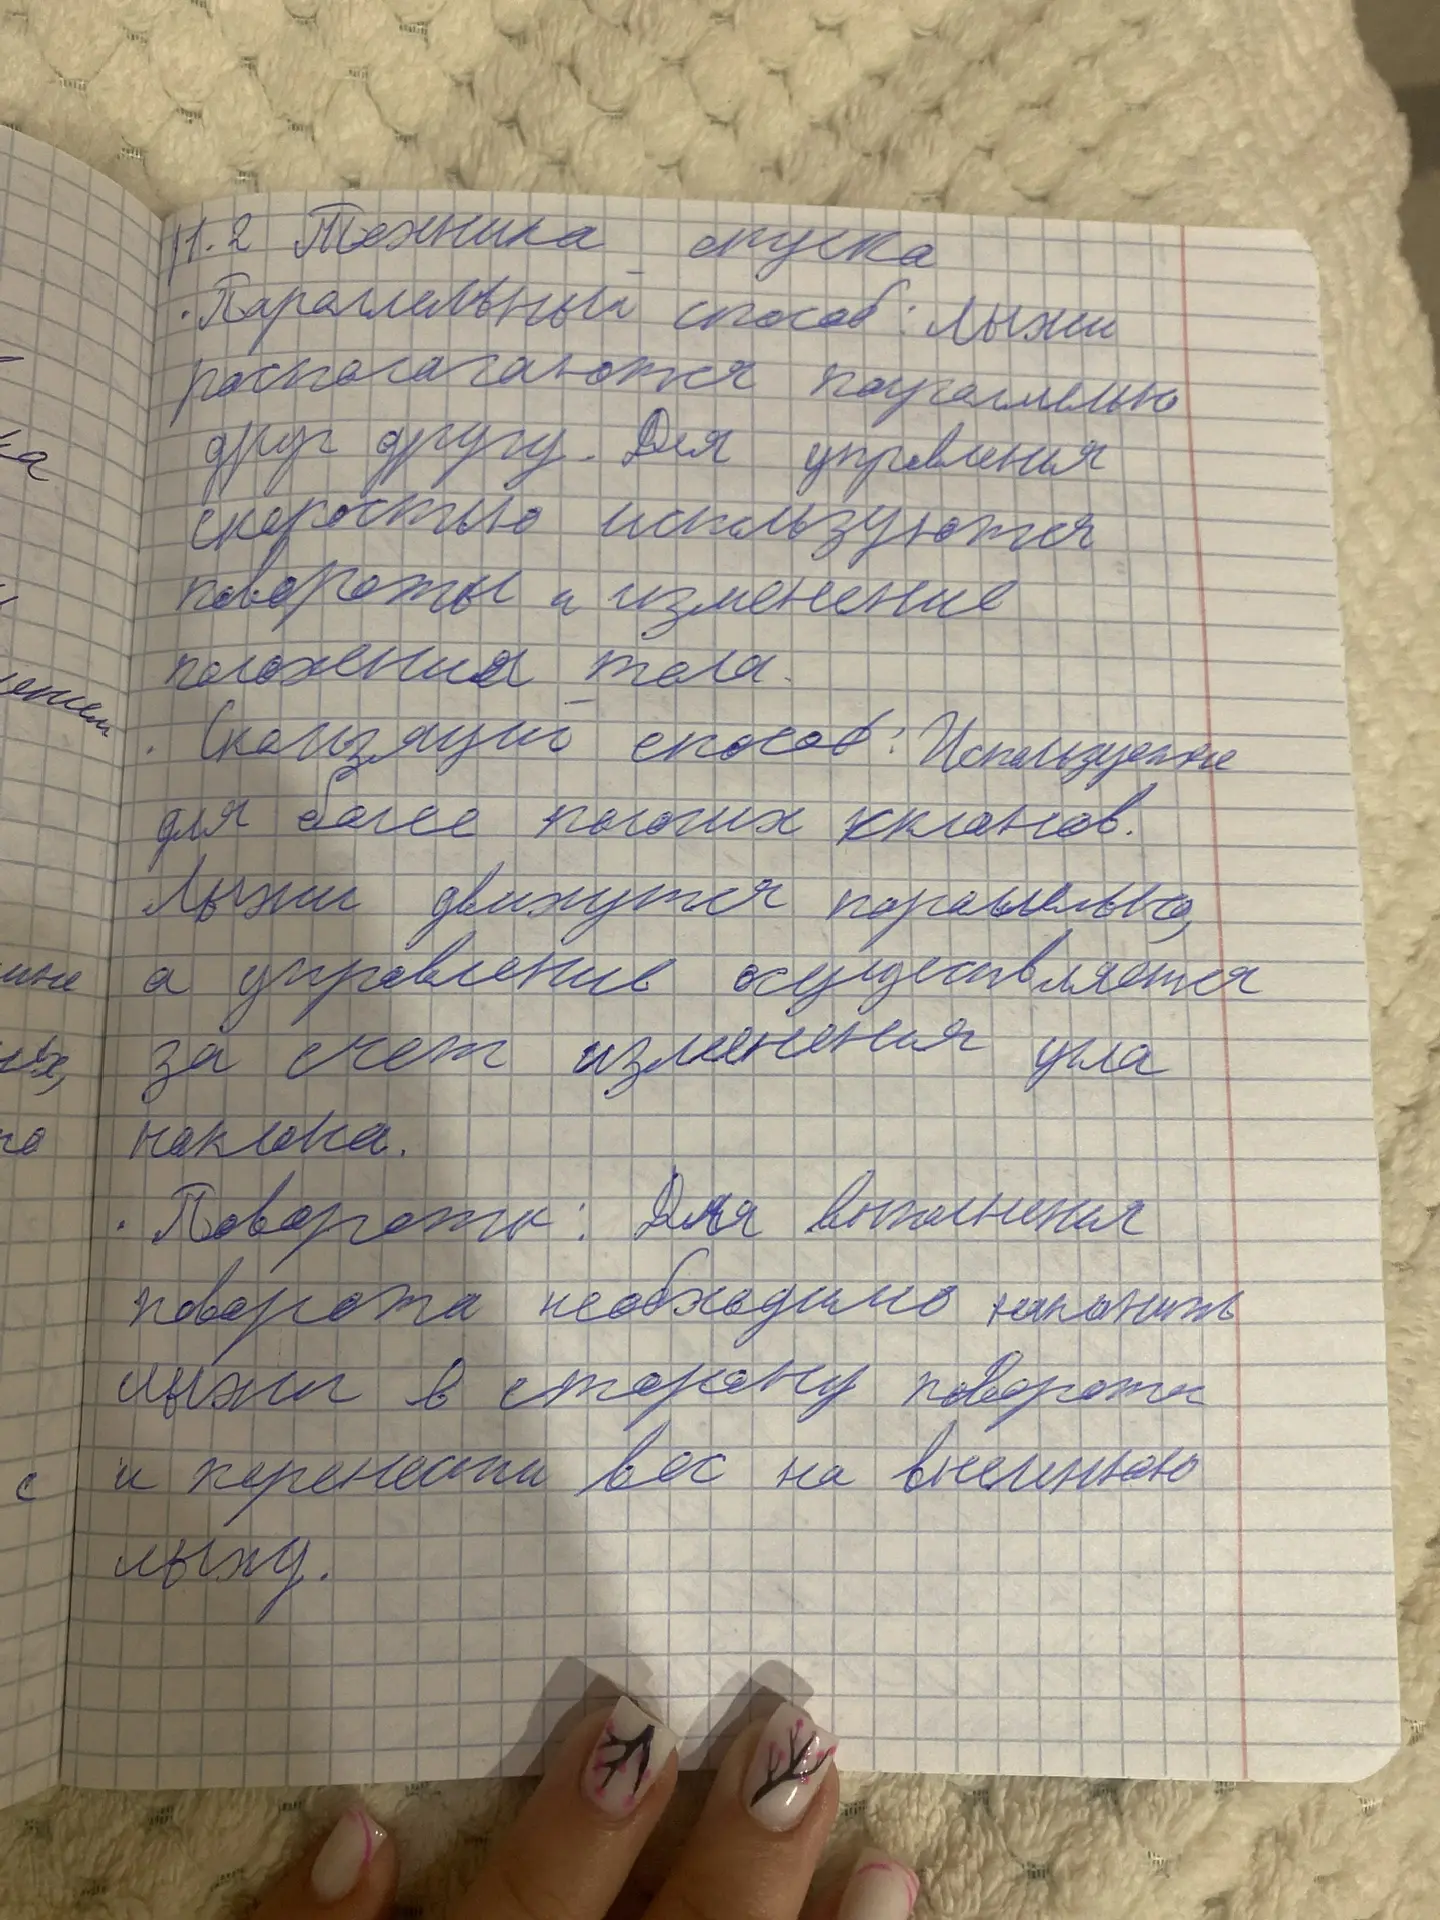 11.2 Техника спуска
· Параллельный способ: Лыжи
располагаются параллельно
друг другу. Для управления
скоростью используются
повороты и изменение
положения тела.
· Скользящий способ: Используется
для более пологих склонов.
Лыжи движутся параллельно,
а управление осуществляется
за счет изменения угла
наклона.
· Повороты: Для выполнения
поворота необходимо наклонить
лыжи в сторону поворота
и перенести вес на внешнюю
лыжу.